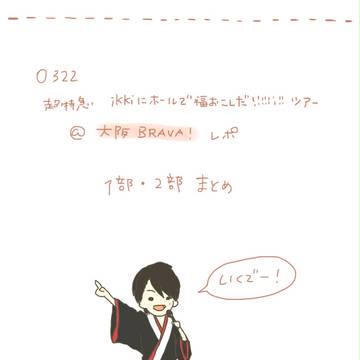 0322
超特急 ikkiにホールで福おこしだ!!!!!! ツアー
@ 大阪 BRAVA! レポ
1部・2部 まとめ
いくでー!